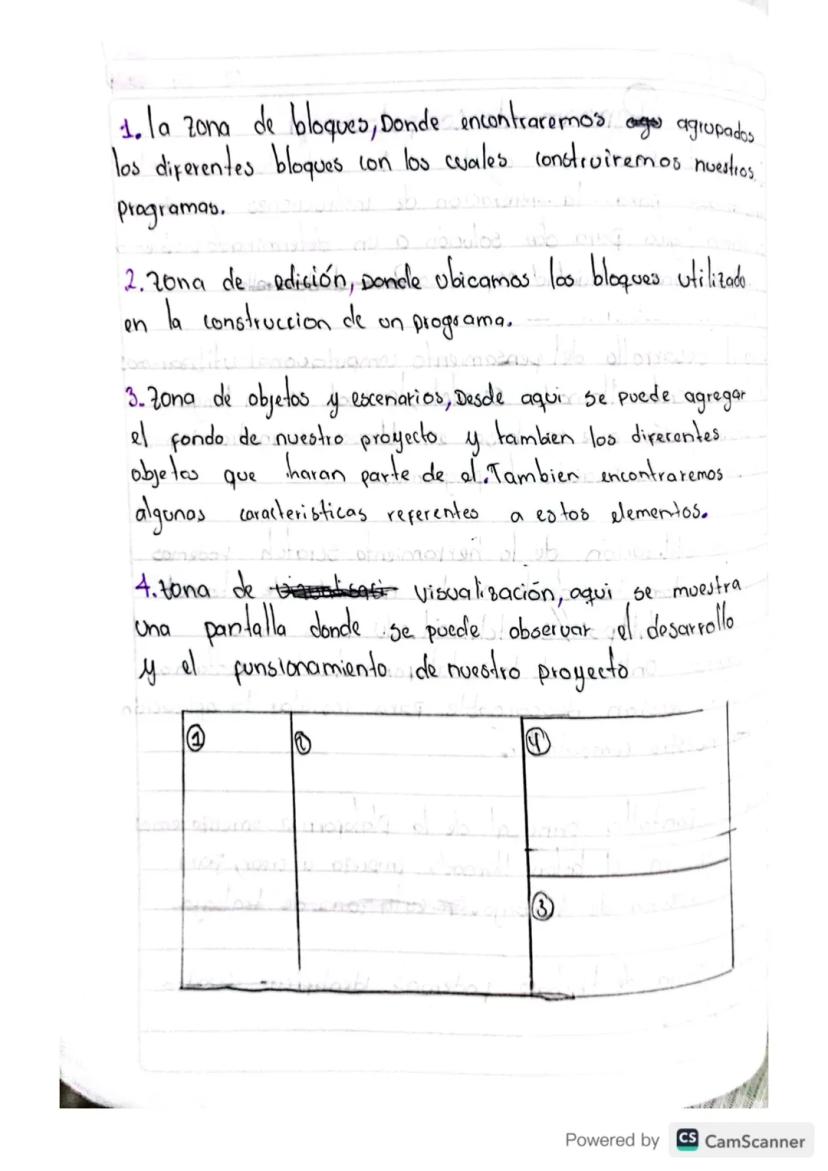 1. la zona de bloques, Donde encontraremos agrupados
los diferentes bloques con los cuales construiremos nuestros
programas.
2. zona de edición, Donde ubicamos los bloques utilizado
en la construccion de un programa.
3. zona de objetos y escenarios, Desde aqui se puede agregar
el fondo de nuestro proyecto y tambien los diferentes
objetos que haran parte de el. Tambien encontraremos
algunas caracteristicas referentes a estos elementos.
4. zona de visualización, aqui se muestra
una pantalla donde se puede observar el desarrollo
y el funsionamiento de nuestro proyecto
1 2 4
3
Powered by CS CamScanner